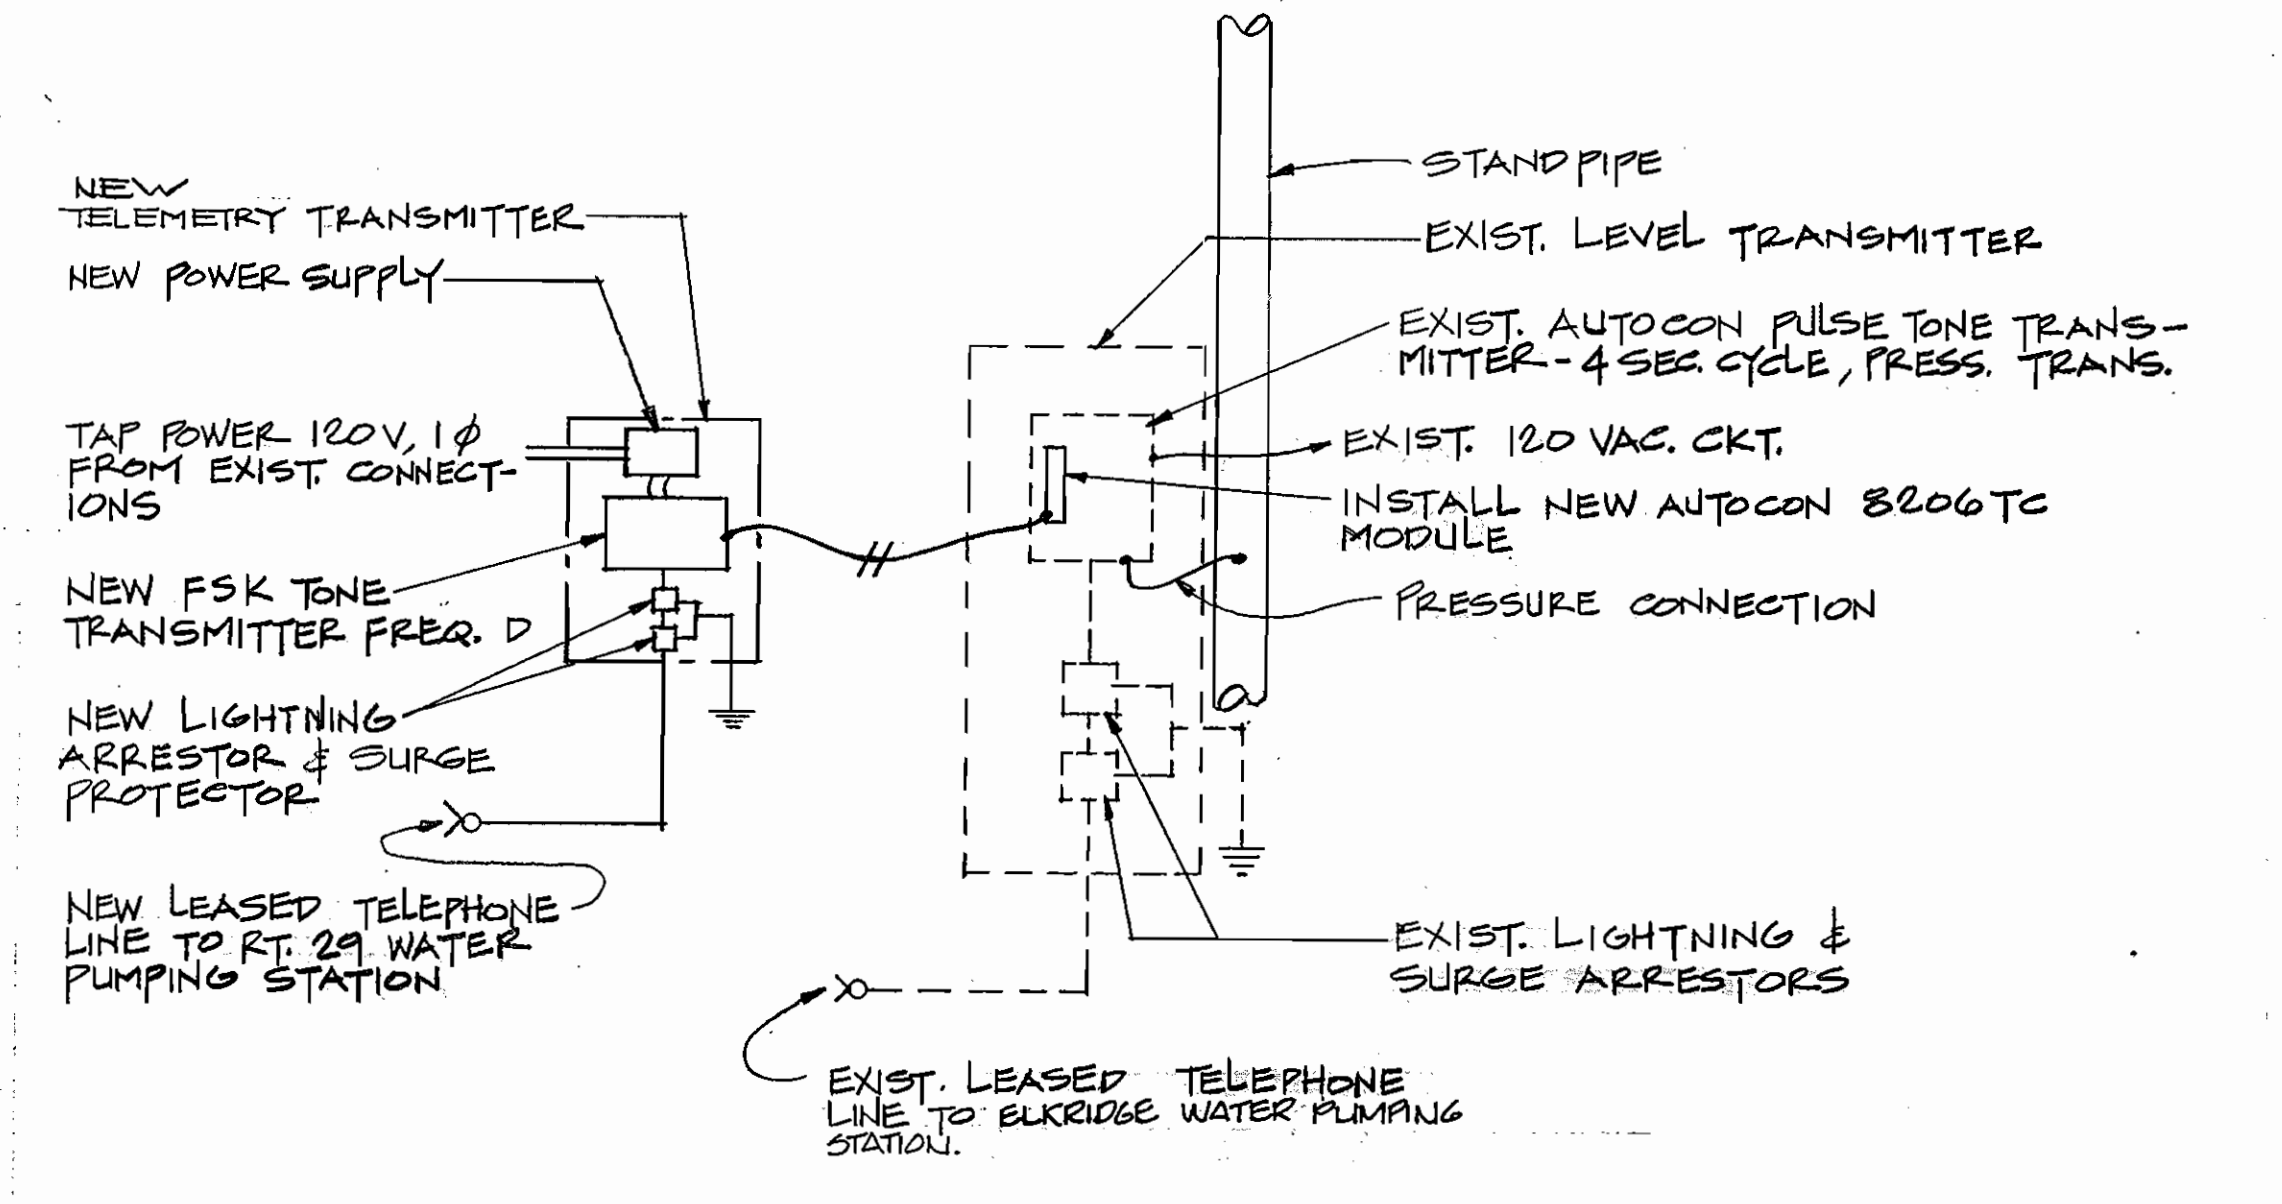 NEW
TELEMETRY TRANSMITTER
NEW POWER SUPPLY
TAP POWER 120V, 1Ø
FROM EXIST. CONNECT-
IONS
NEW FSK TONE
TRANSMITTER FREQ. D
NEW LIGHTNING
ARRESTOR & SURGE
PROTECTOR
NEW LEASED TELEPHONE
LINE TO RT. 29 WATER
PUMPING STATION
STANDPIPE
EXIST. LEVEL TRANSMITTER
EXIST. AUTOCON PULSE TONE TRANS-
MITTER - 4 SEC. CYCLE, PRESS. TRANS.
EXIST. 120 VAC. CKT.
INSTALL NEW AUTOCON 8206TC
MODULE
PRESSURE CONNECTION
EXIST. LIGHTNING &
SURGE ARRESTORS
EXIST. LEASED TELEPHONE
LINE TO ELKRIDGE WATER PUMPING
STATION.